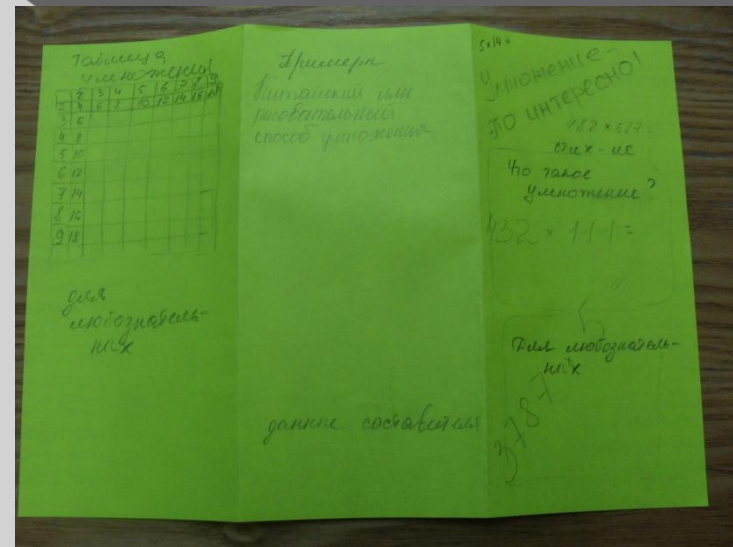 Таблица
умножения
2 3 4 5 6 7 8 9
2 4 6 8 10 12 14 16 18
3 6
4 8
5 10
6 12
7 14
8 16
9 18
для
любознатель-
ных
Примеры
Китайский или
рисовательный
способ умножения
данные составителя
5x14=
Умножение-
это интересно!
482 x 527=
стих-ие
Что такое
умножение?
432 x 111=
Для любознатель-
ных
3787